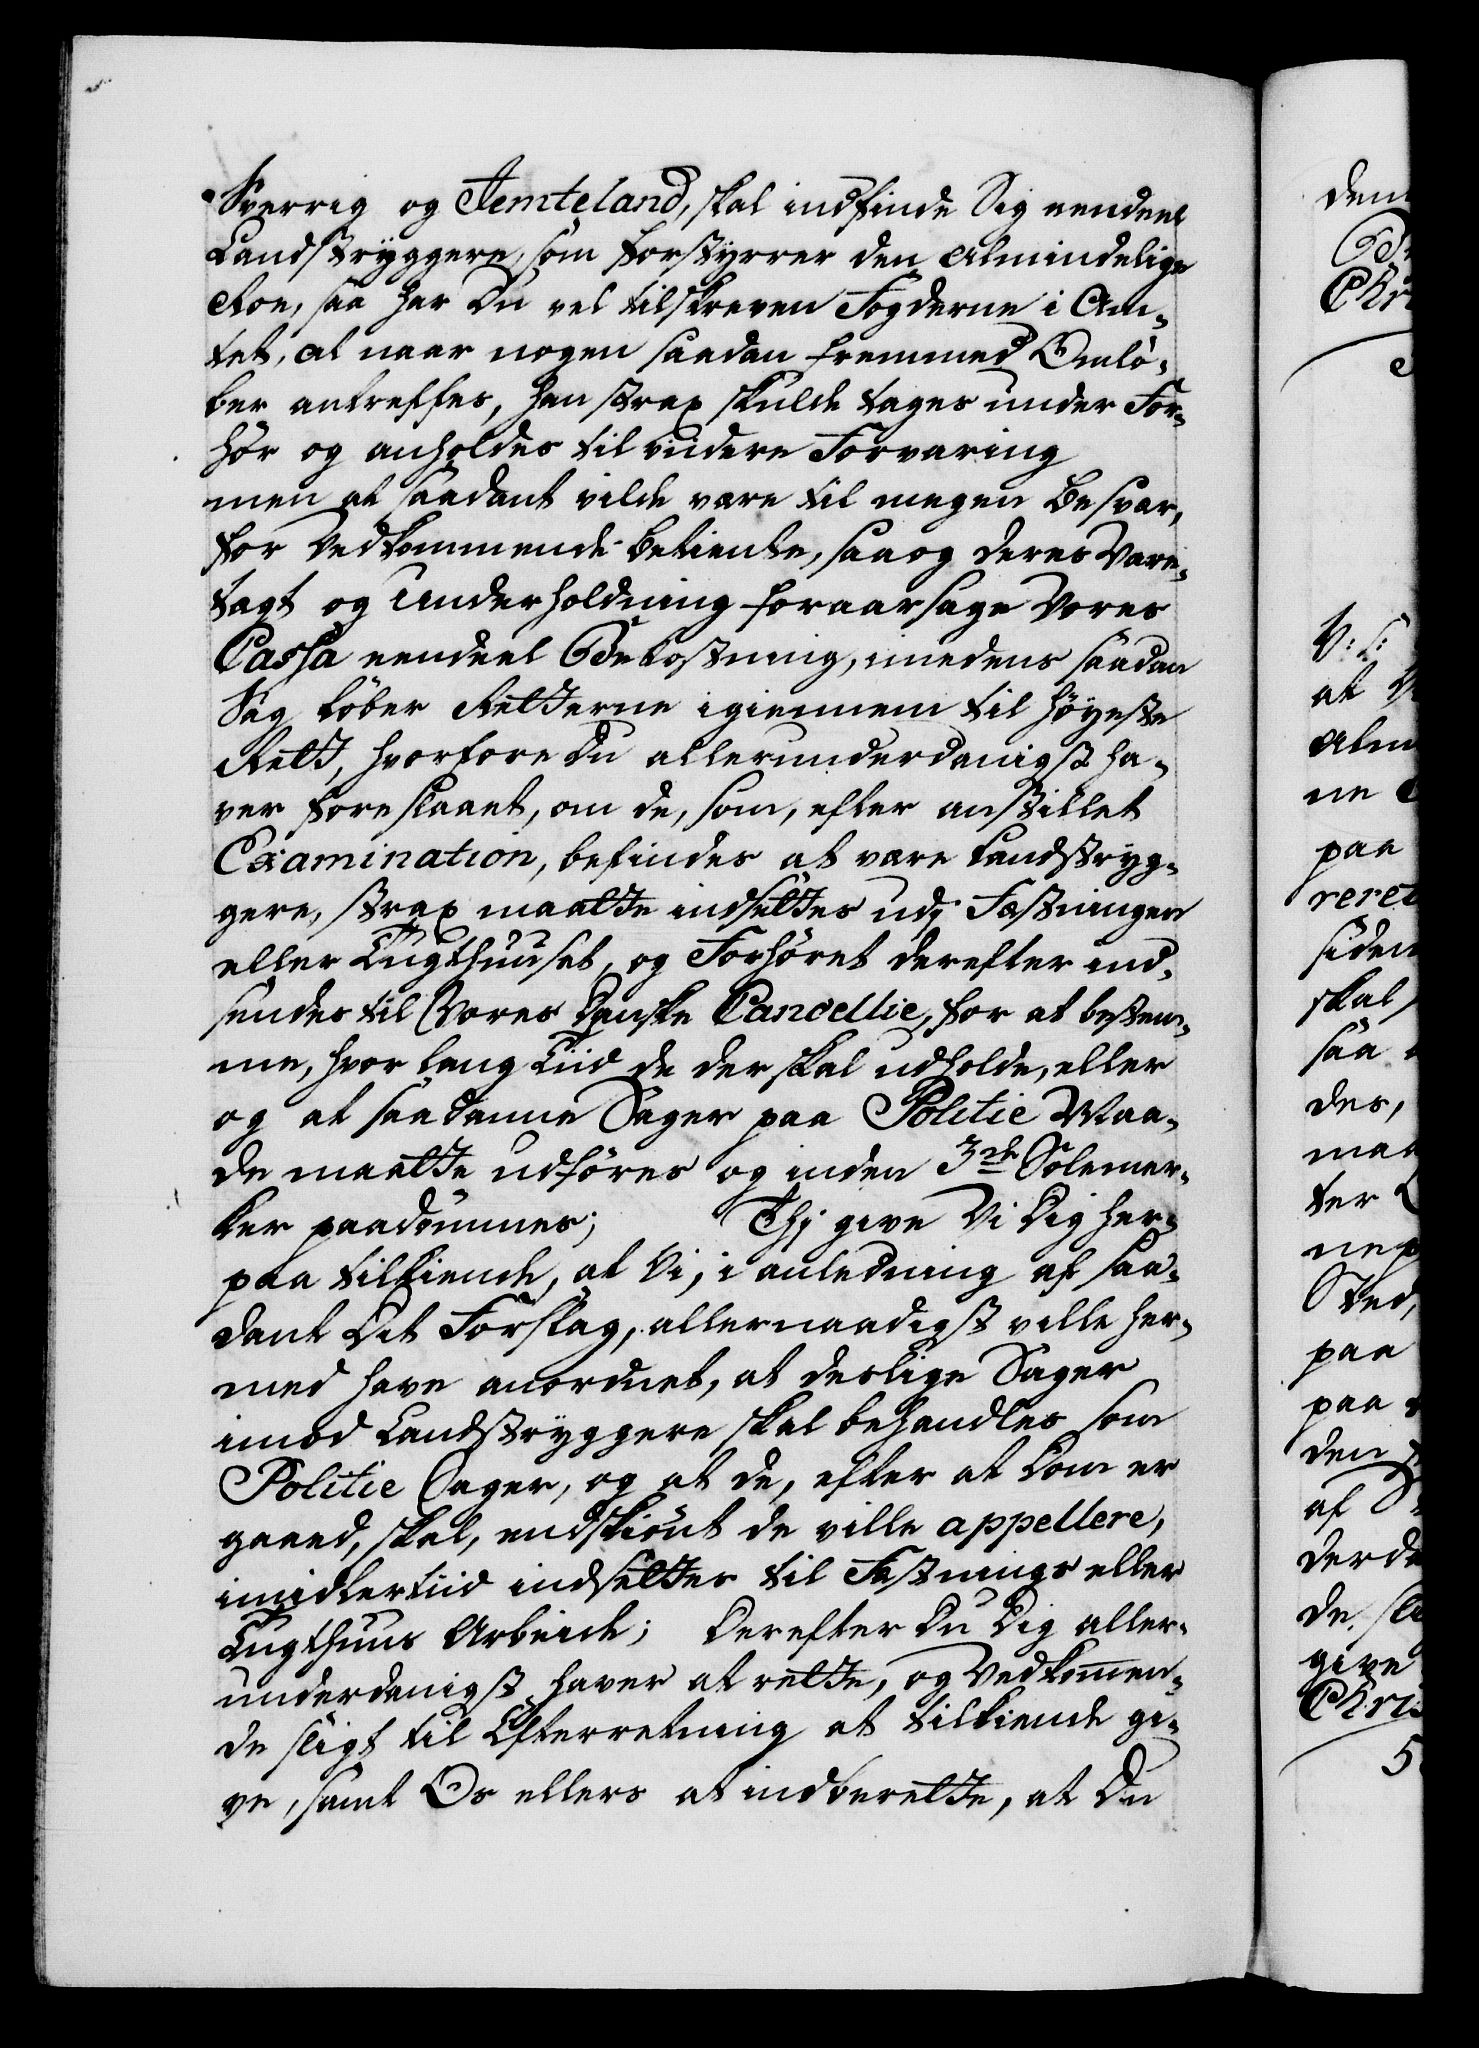 Sverrig og Jemteland, skal indfinde Sig eendeel
Landstryggere, som forstyrrer den Almindelige
Roe, saa har Du vel tilskreven Fogderne i Am-
tet, at naar nogen saadan fremmed Omlö-
ber antreffes, han strax skulde tages under For-
hör og anholdes til viidere Forvaring
men at saadant vilde være til megen Besvær,
for Vedkommende betiente, saa og deres Vare-
tagt og Underholdning foraarsage Vores
Cassa eendeel Bekostning, imedens saadan
Sag löber Retterne igiennem til höyeste
Rett, hvorfore Du allerunderdanigst ha-
ver foreslaaet, om de, som, efter anstillet
Examination, befindes at være Landstryg-
gere, strax maatte indsettes udj Fæstningen
eller Tugthuuset, og Forhöret derefter ind-
sendes til Vores Danske Cancellie, for at bestem-
me, hvor lang Tiid de der skal udholde, eller
og at saadanne Sager paa Politie Maa-
de maatte udföres og inden 3de Solemer-
ker paadömmes; Thj give Vi Dig her-
paa tilkiende, at Vi, i anledning af saa-
dant Dit Forslag, allernaadigst ville her-
med have anordnet, at deslige Sager
imod Landstryggere skal behandles som
Politie Sager, og at de, efter at Dom er
gaaed, skal, endskiönt de ville appellere,
imidlertiid indsettes til Fæstnings eller
Tugthuus Arbeide; Derefter Du Dig aller-
underdanigst haver at rette, og Vedkommen-
de sligt til Efterretning at tilkiende gi-
ve, samt Os ellers at indberette, at Du